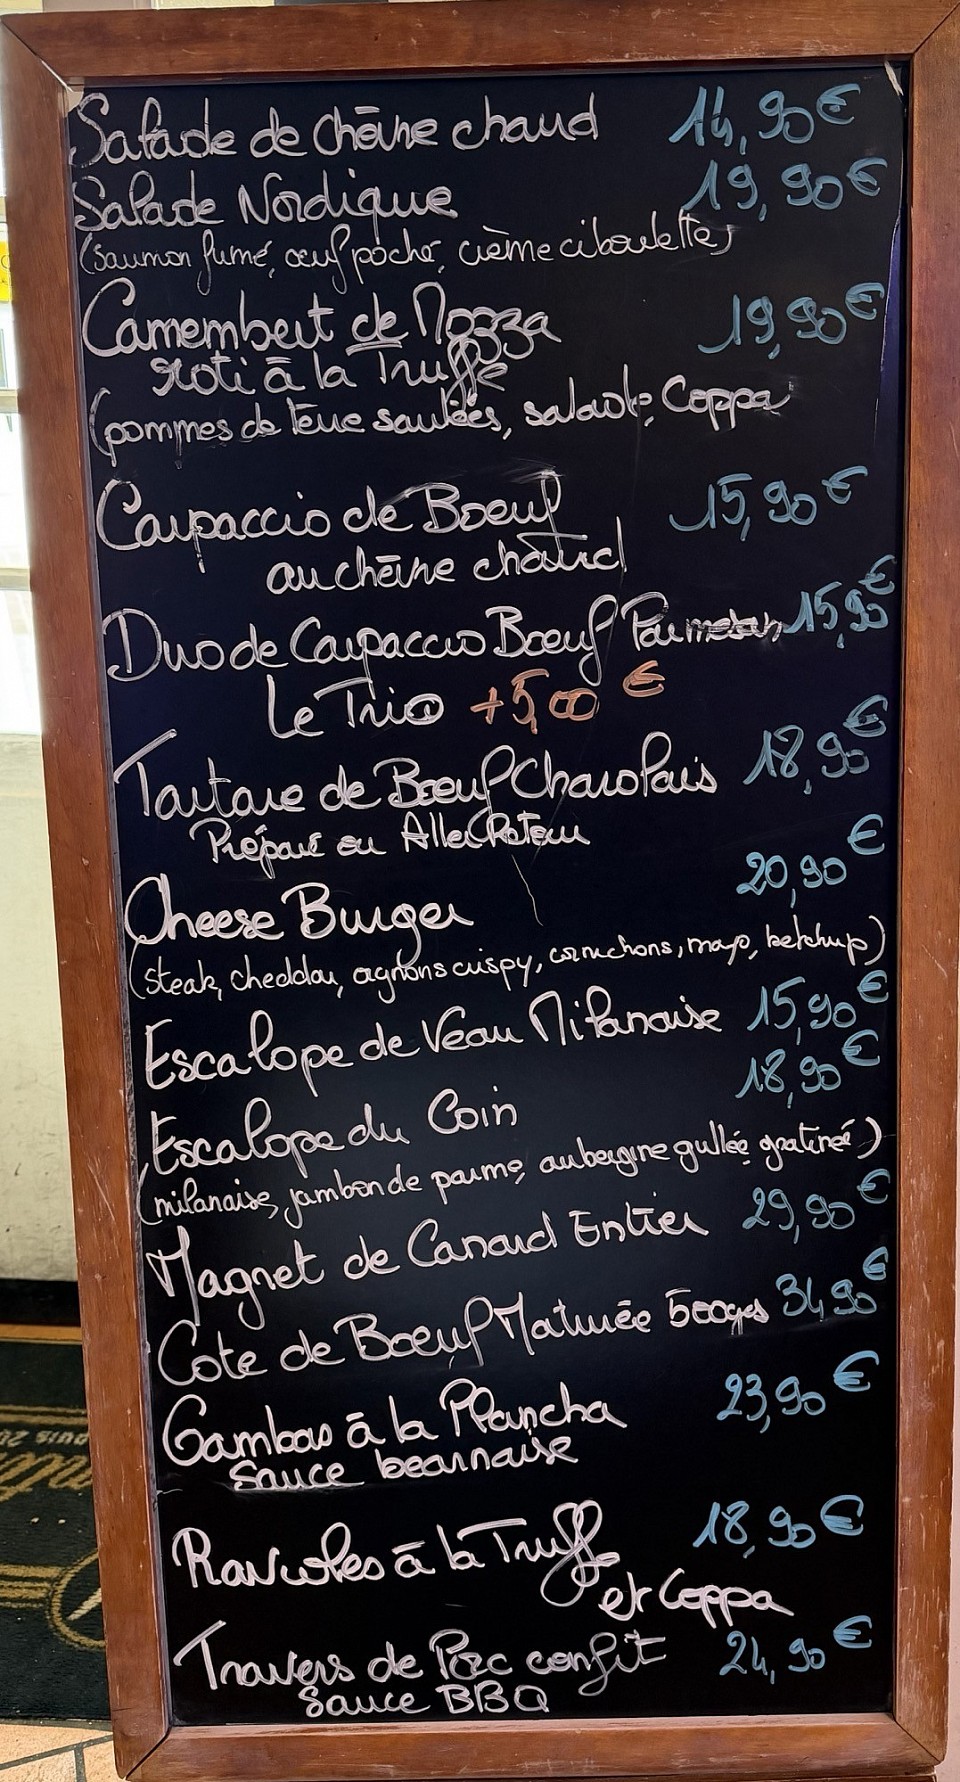 Salade de chèvre chaud 14,90€
Salade Nordique 19,90€
(saumon fumé, œuf poché, crème ciboulette)
Camembert de Mozza 19,90€
roti à la Truffe
(pommes de terre sautées, salade, Coppa
Carpaccio de Boeuf 15,90€
au chèvre chaud
Duo de Carpaccio Boeuf Parmesan 15,90€
Le Trio +5,00 €
Tartare de Boeuf Charolais 18,90€
Préparé ou Aller Retour
Cheese Burger 20,90€
(steak, cheddar, oignons crispy, cornichons, mayo, ketchup)
Escalope de Veau Milanaise 15,90€
Escalope du Coin 18,90€
(milanaise, jambon de parme, aubergine grillée gratinée)
Magret de Canard Entier 29,90€
Cote de Boeuf Maturée 500grs 34,90€
Gambas à la Plancha 23,90€
Sauce bearnaise
Ravioles à la Truffe 18,90€
et Coppa
Travers de Porc confit 24,90€
Sauce BBQ